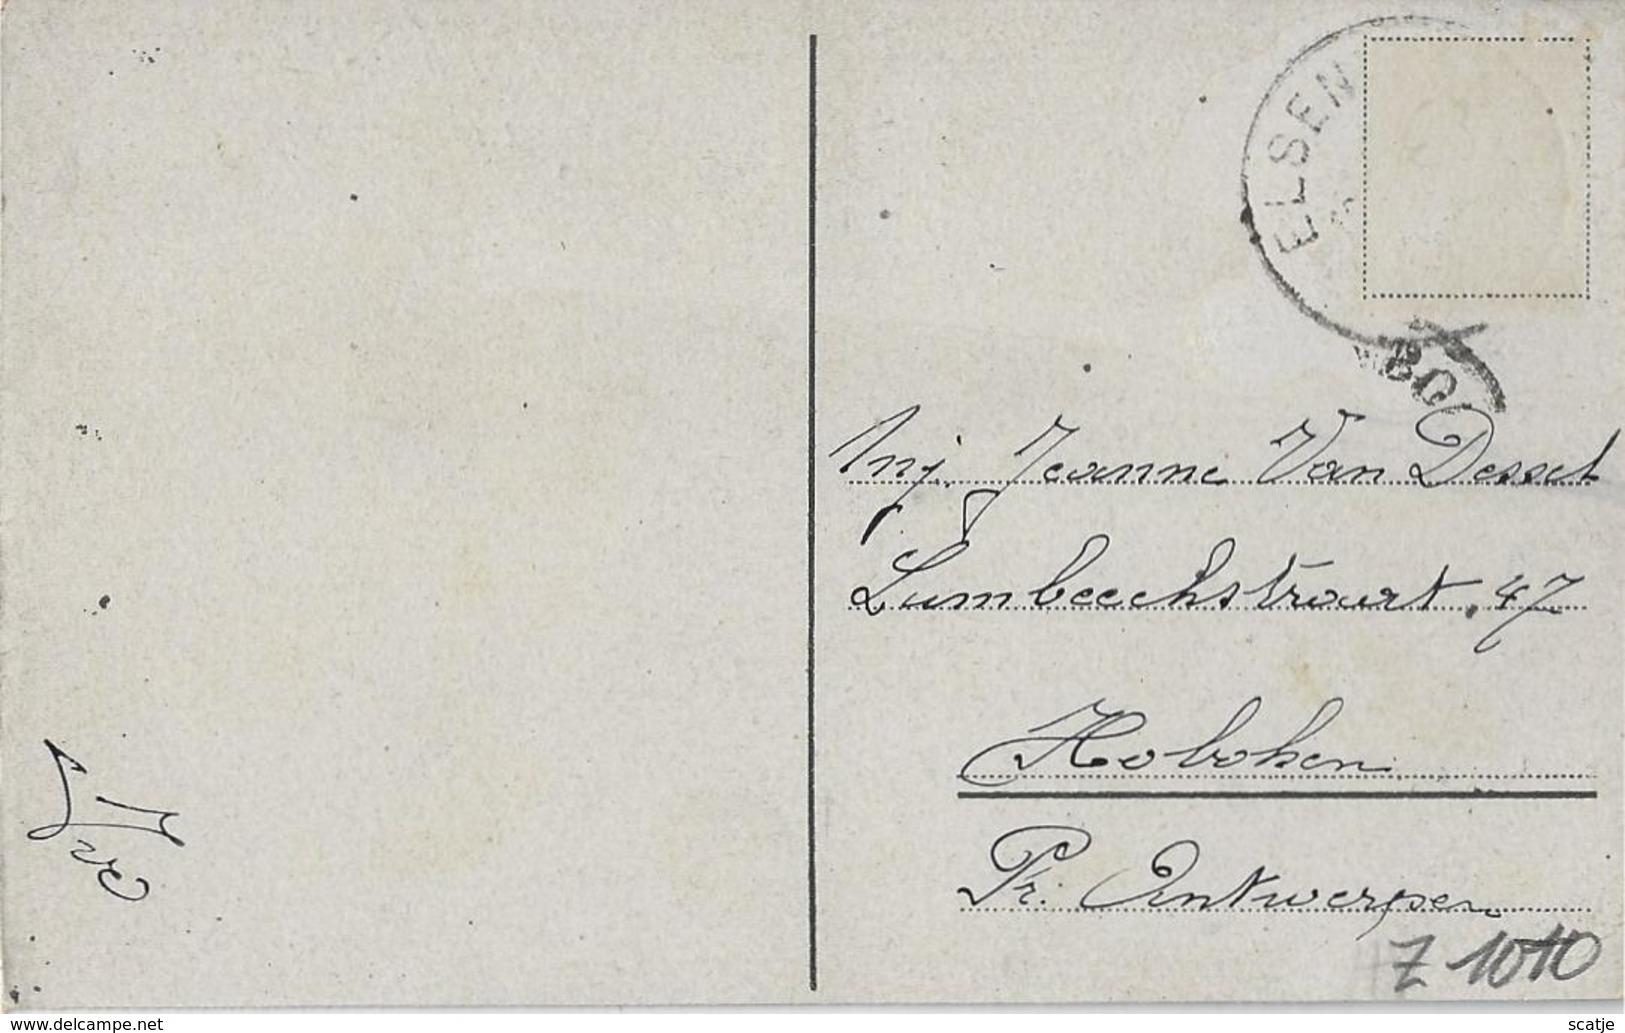 ELSEN
Mj. Jeanne Van Dessel
Lumbeeckstraat. 47
Hoboken
Pr. Antwerpen
Ive
Z 1010
www.delcampe.net
scatje